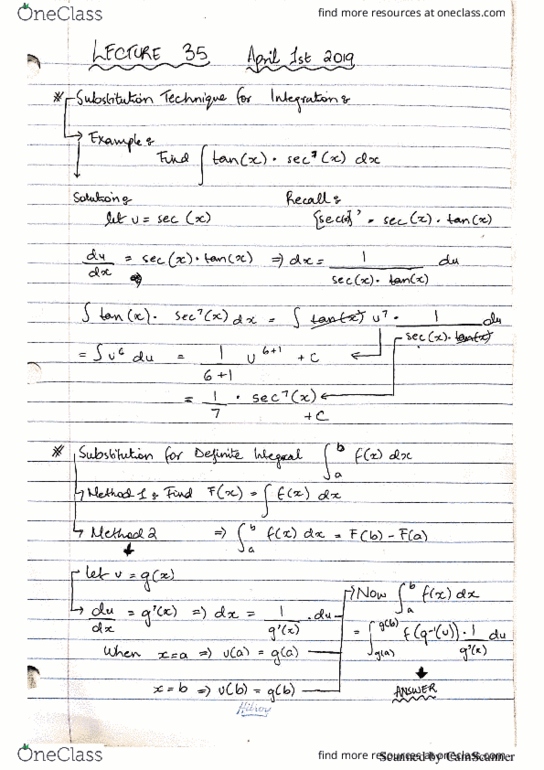 OneClass
find more resources at oneclass.com
LECTURE 35 April 1st 2019
* Substitution Technique for Integration:
→ Example:
Find ∫ tan(x) · sec⁷(x) dx
Solution: Recall:
let u = sec (x) [sec(x)]' = sec(x) · tan(x)
du/dx = sec(x) · tan(x) ⇒ dx = 1/(sec(x) · tan(x)) du
∫ tan(x) · sec⁷(x) dx = ∫ tan(x) u⁷ · 1/(sec(x) · tan(x)) du
= ∫ u⁶ du = 1/(6+1) u⁶⁺¹ + C
= 1/7 · sec⁷(x) + C
* Substitution for Definite Integral ∫ₐᵇ f(x) dx
→ Method 1: Find F(x) = ∫ f(x) dx
→ Method 2 ⇒ ∫ₐᵇ f(x) dx = F(b) - F(a)
let u = g(x)
→ du/dx = g'(x) ⇒ dx = 1/g'(x) · du
When x=a ⇒ u(a) = g(a)
x=b ⇒ u(b) = g(b)
→ Now ∫ₐᵇ f(x) dx
= ∫_g(a)^g(b) f(g⁻¹(u)) · 1/g'(x) du
ANSWER
Hilroy
OneClass
find more resources at oneclass.com
Scanned by CamScanner